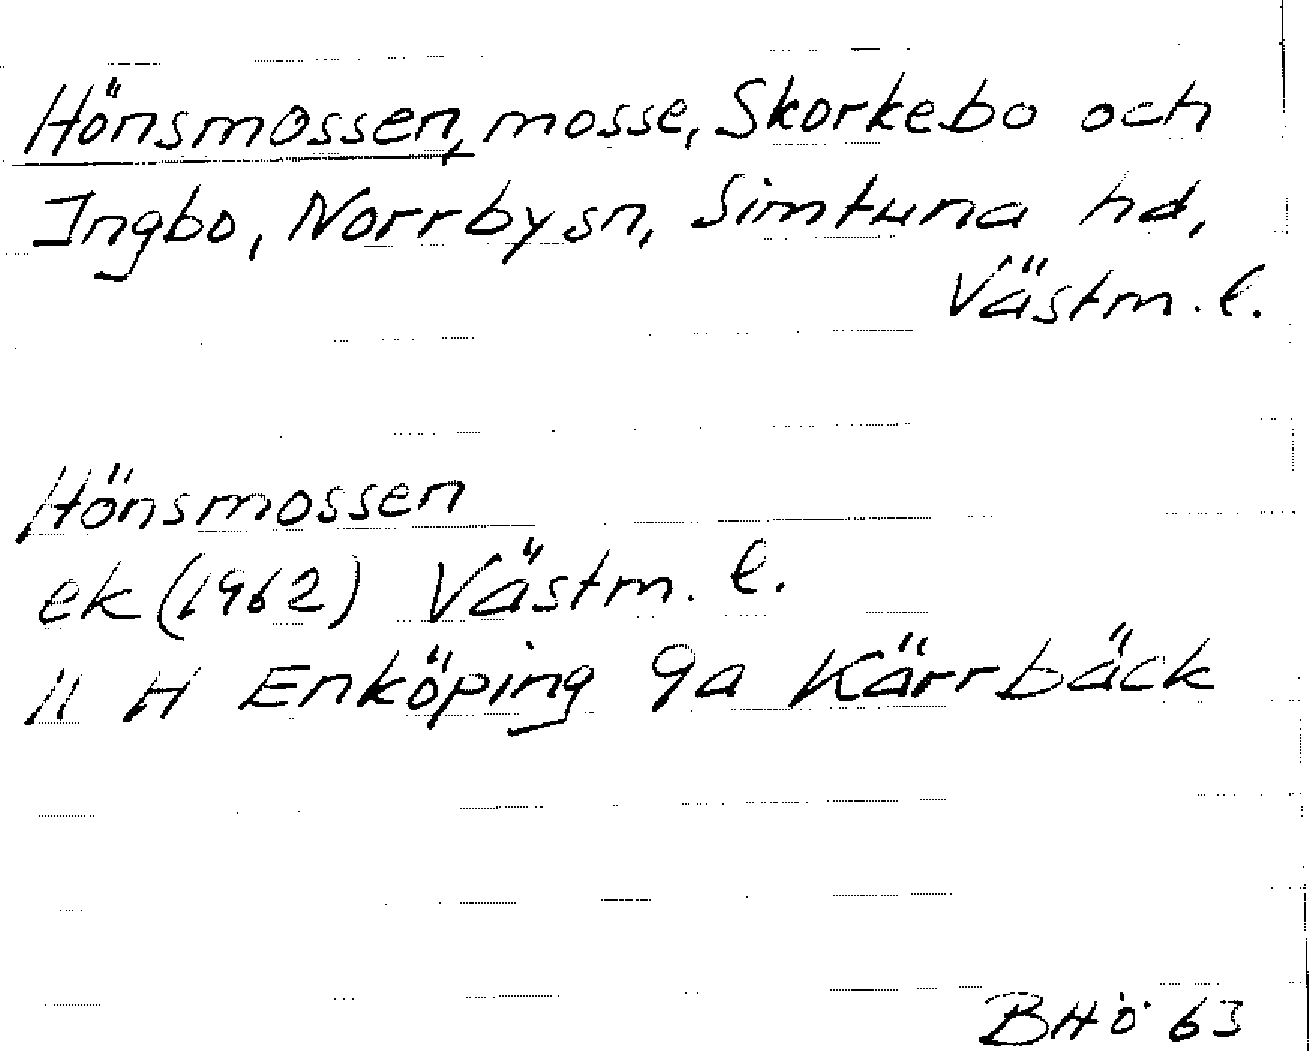 Hönsmossen, mosse, Skorkebo och
Ingbo, Norrby sn, Simtuna hd,
Västm. l.
Hönsmossen
ek (1962) Västm. l.
11 H Enköping 9a Kärrbäck
BHÖ 63